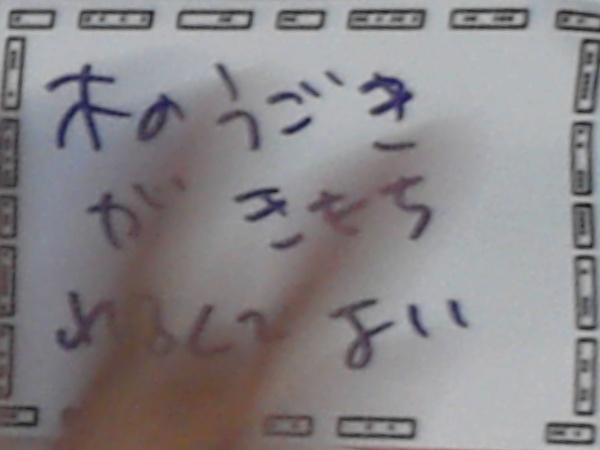 木のうごき
が きもち
わるくて よい